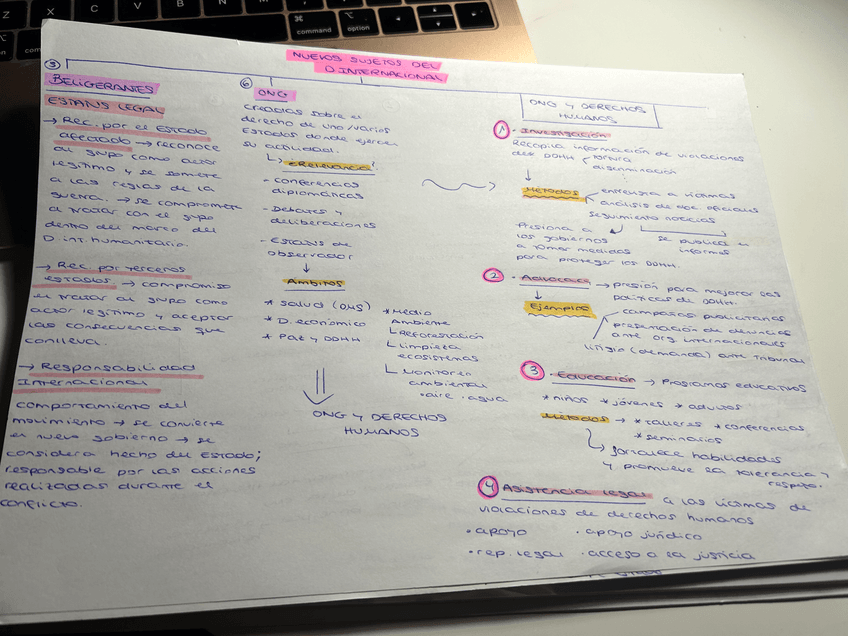 Z
X
C
V
B
N
M
<
>
?
⌘
command
⌥
option
NUEVOS SUJETOS DEL
D.INTERNACIONAL
⑤
BELIGERANTES
ESTATUS LEGAL
→ Rec. por el ESTADO
afectado → reconoce
al grupo como actor
legítimo y se somete
a las reglas de la
guerra. → se compromete
a tratar con el grupo
dentro del marco del
D. int. humanitario.
→ Rec. por terceros
estados → compromiso
en tratar al grupo como
actor legítimo y aceptar
las consecuencias que
conlleva.
→ Responsabilidad
Internacional
comportamiento del
movimiento → se convierte
en nuevo gobierno → se
considera hecho del Estado;
responsable por las acciones
realizadas durante el
conflicto.
⑥
ONG
creadas sobre el
derecho de uno/varios
Estados donde ejercen
su actividad.
↳ Relevancia:
- conferencias
diplomáticas
- Debates y
deliberaciones
- Estatus de
observador
↓
Ámbitos
* Salud (OMS)
* D. económico
* Paz y DDHH
* Medio
Ambiente
↳ Reforestación
↳ limpieza
ecosistemas
↳ Monitoreo
ambiental
• aire • agua
⇓
ONG Y DERECHOS
HUMANOS
ONG Y DERECHOS
HUMANOS
1 - Investigación
Recopila información de violaciones
des DDHH
tortura
discriminación
↓
Métodos
entrevista a víctimas
análisis de doc oficiales
seguimiento noticias
Presiona a
los gobiernos
a tomar medidas
para proteger los DDHH.
se publica en
informes
2 - Advocacy → presión para mejorar las
políticas de DDHH.
↓
Ejemplos
campañas publicitarias
presentación de denuncias
ante org internacionales
litigio (demanda) ante tribunal
3 - Educación → Programas educativos
* niños * jóvenes * adultos
Métodos → * talleres * conferencias
* seminarios
↳ fortalece habilidades
y promueve la tolerancia y
respeto.
4 Asistencia legal a las víctimas de
violaciones de derechos humanos
• apoyo • apoyo jurídico
• rep. legal • acceso a la justicia